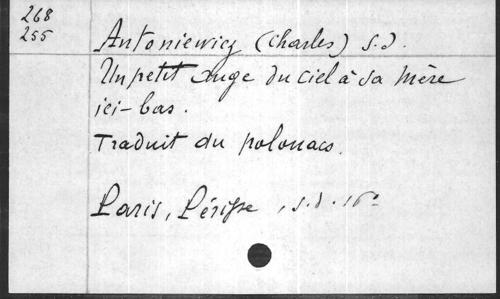 268
255
Antoniewicz (Charles) s.d.
Un petit Ange du Ciel à sa Mère
ici-bas.
Traduit du polonais.
Paris, Périsse, s.d. 16°